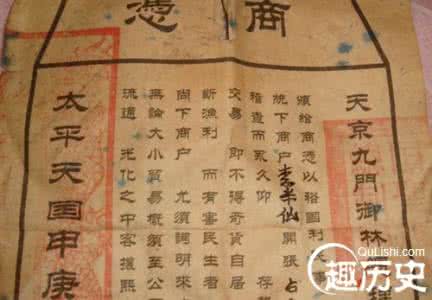 商憑
天京九門御林
頒給商憑以裕國利
統下商户李半仙開張占
稽查而永久仰 存
交易 即不得奇貨自居
斷漁利 而有害民生者
尚下商户 尤須詞明來
無論大小貿易概須至公
流通 光化之中客援熙
太平天囯申庚
QuLishi.com
趣历史